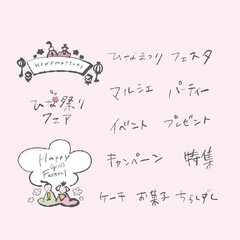 HINAMATSURI
ひな祭り
フェア
Happy
Girl's
Festival
ひなまつり フェスタ
マルシェ パーティー
イベント プレゼント
キャンペーン 特集
ケーキ お菓子 ちらしずし